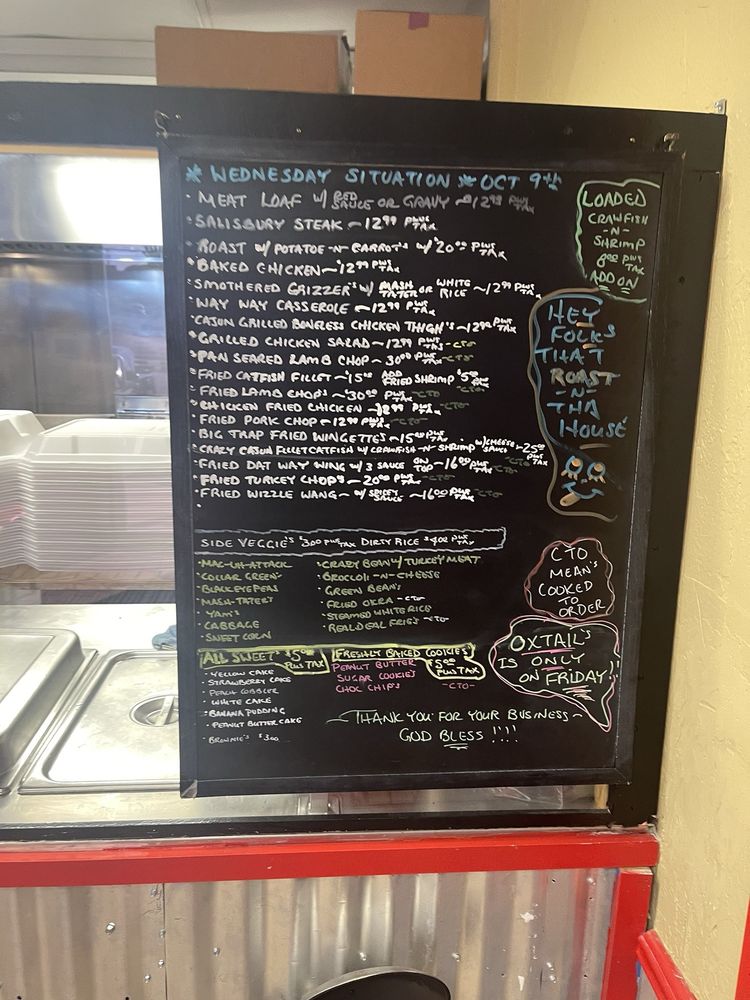 * WEDNESDAY SITUATION * OCT 9TH
• MEAT LOAF W/ RED SAUCE OR GRAVY ~ $12 99 PLUS TAX
• SALISBURY STEAK ~ 12 99 PLUS TAX
• ROAST W/ POTATOE -N- CARROT'S W/ $20 00 PLUS TAX
• BAKED CHICKEN ~ $12 99 PLUS TAX
• SMOTHERED GRIZZER'S W/ MASH TATER OR WHITE RICE ~ 12 99 PLUS TAX
• WAY WAY CASSEROLE ~ 12 99 PLUS TAX
• CAJUN GRILLED BONELESS CHICKEN THIGH'S ~ 12 99 PLUS TAX
• GRILLED CHICKEN SALAD ~ 12 99 PLUS TAX -CTO-
• PAN SEARED LAMB CHOP ~ 30 00 PLUS TAX -CTO-
• FRIED CATFISH FILLET ~ $15 00 ADD FRIED SHRIMP $5 00 PLUS TAX
• FRIED LAMB CHOP'S ~ $30 00 PLUS TAX -CTO-
• CHICKEN FRIED CHICKEN ~ PLUS TAX -CTO-
• FRIED PORK CHOP ~ 12 99 PLUS TAX -CTO-
• BIG TRAP FRIED WINGETTE'S ~ 15 00 PLUS TAX
• CRAZY CAJUN FILLET CATFISH W/ CRAWFISH -N- SHRIMP W/ CHEESE SAUCE ~ 25 00 PLUS TAX
• FRIED DAT WAY WING W/ 3 SAUCE ON TOP ~ 16 00 PLUS TAX -CTO-
• FRIED TURKEY CHOP'S ~ 20 00 PLUS TAX -CTO-
• FRIED WIZZLE WANG ~ W/ SPICEY SAUCE ~ $16 00 PLUS TAX -CTO-
LOADED
CRAWFISH
-N-
SHRIMP
8 00 PLUS TAX
ADD ON
HEY
FOLKS
THAT
ROAST
-N-
THA
HOUSE
SIDE VEGGIE'S $3 00 PLUS TAX DIRTY RICE $4 00 PLUS TAX
• MAC-UH-ATTACK
• COLLAR GREEN'S
• BLACKEYE PEAS
• MASH-TATER'S
• YAM'S
• CABBAGE
• SWEET CORN
• CRAZY BEAN W/ TURKEY MEAT
• BROCCOLI -N- CHEESE
• GREEN BEAN'S
• FRIED OKRA -CTO-
• STEAMED WHITE RICE
• REAL DEAL FRIE'S -CTO-
CTO
MEAN'S
COOKED
TO
ORDER
OXTAIL'S
IS ONLY
ON FRIDAY!!
ALL SWEET'S $5 00 PLUS TAX
• YELLOW CAKE
• STRAWBERRY CAKE
• PEACH COBBLER
• WHITE CAKE
• BANANA PUDDING
• PEANUT BUTTER CAKE
• BROWNIE'S $3.00
FRESHLY BAKED COOKIES
$5 00 PLUS TAX
PEANUT BUTTER
SUGAR COOKIE'S
CHOC CHIP'S
-CTO-
~ THANK YOU FOR YOUR BUSINESS ~
GOD BLESS !!!!